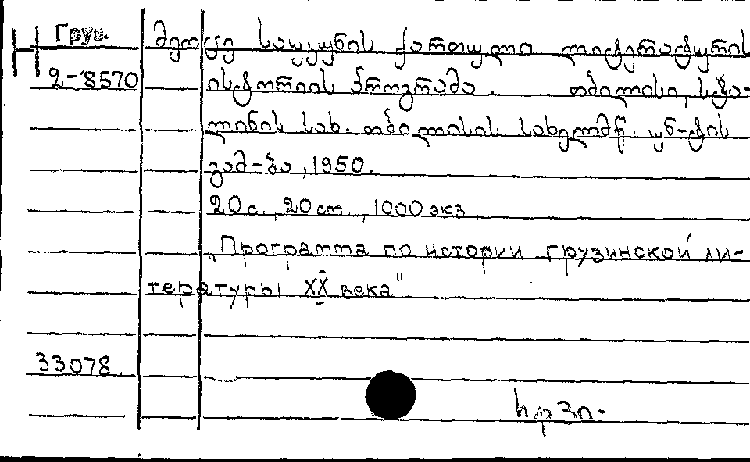 Груз.
მეოცე საუკუნის ქართული ლიტერატურის
2-8570
ისტორიის პროგრამა. თბილისი, სტა-
ლინის სახ. თბილისის სახელმწ. უნ-ტის
გამ-ბა, 1950.
20 с., 20 cm., 1000 экз
„Программа по истории грузинской ли-
тературы XX века"
33078